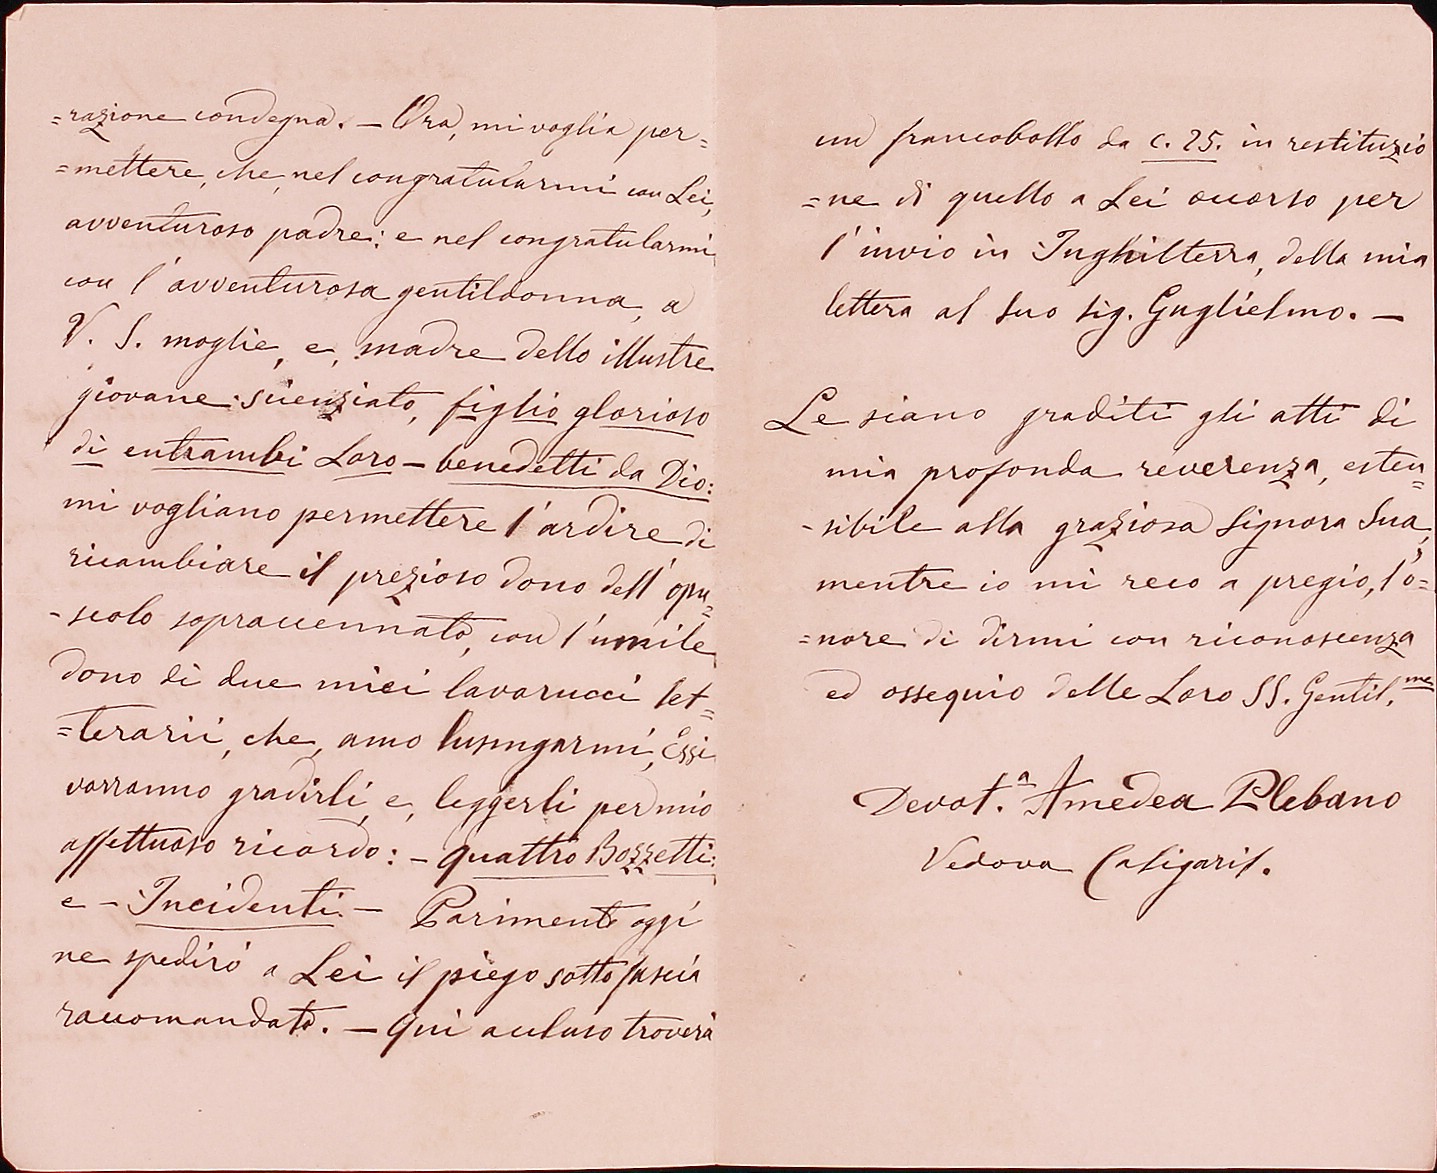 =razione condegna. — Ora, mi voglia per=
=mettere, che, nel congratularmi con Lei,
avventuroso padre: e nel congratularmi
con l'avventurosa gentildonna, a
V. S. moglie, e, madre dello illustre
giovane scienziato, figlio glorioso
di entrambi Loro — benedetti da Dio:
mi vogliano permettere l'ardire di
ricambiare il prezioso dono dell'opu=
-scolo sopraccennato, con l'umile
dono di due miei lavorucci let=
=terarii, che, amo lusingarmi, Essi
vorranno gradirli, e, leggerli per mio
affettuoso ricordo: — quattro Bozzetti:
e — Incidenti — Parimenti oggi
ne spedirò a Lei il piego sotto fascia
raccomandato. — Qui accluso troverà
un francobollo da c. 25. in restituzio
=ne di quello a Lei occorso per
l'invio in Inghilterra, della mia
lettera al suo sig. Guglielmo. —
Le siano graditi gli atti di
mia profonda reverenza, esten=
-sibile alla graziosa Signora Sua,
mentre io mi reco a pregio, l'o=
=nore di dirmi con riconoscenza
ed ossequio delle Loro SS. Gentil.me
Devot.a Amedea Plebano
Vedova Caligaris.